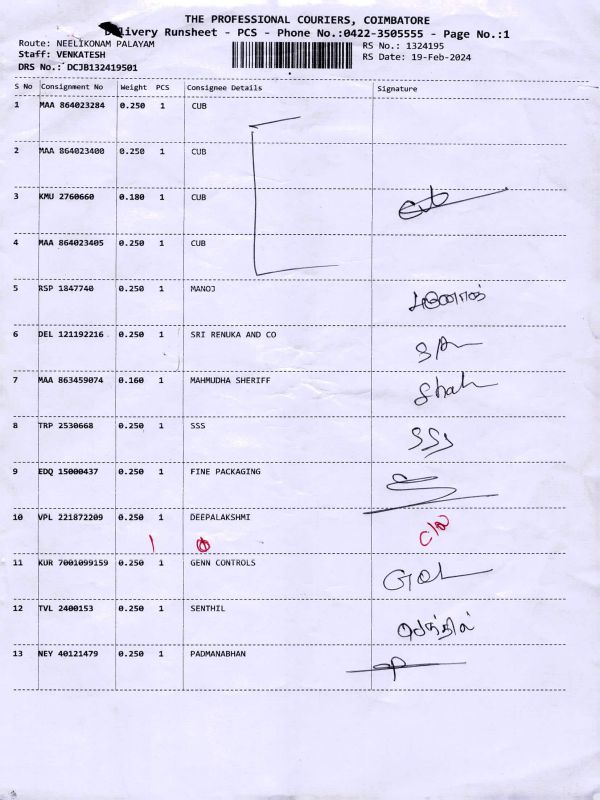 THE PROFESSIONAL COURIERS, COIMBATORE
Delivery Runsheet - PCS - Phone No.:0422-3505555 - Page No.:1
Route: NEELIKONAM PALAYAM
RS No.: 1324195
Staff: VENKATESH
RS Date: 19-Feb-2024
DRS No.: DCJB132419501
S No Consignment No Weight PCS Consignee Details Signature
1 MAA 864023284 0.250 1 CUB
2 MAA 864023400 0.250 1 CUB
3 KMU 2760660 0.180 1 CUB
4 MAA 864023405 0.250 1 CUB
5 RSP 1847740 0.250 1 MANOJ
6 DEL 121192216 0.250 1 SRI RENUKA AND CO
7 MAA 863459074 0.160 1 MAHMUDHA SHERIFF
8 TRP 2530668 0.250 1 SSS SSS
9 EDQ 15000437 0.250 1 FINE PACKAGING
10 VPL 221872209 0.250 1 DEEPALAKSHMI
11 KUR 7001099159 0.250 1 GENN CONTROLS
12 TVL 2400153 0.250 1 SENTHIL செந்தில்
13 NEY 40121479 0.250 1 PADMANABHAN